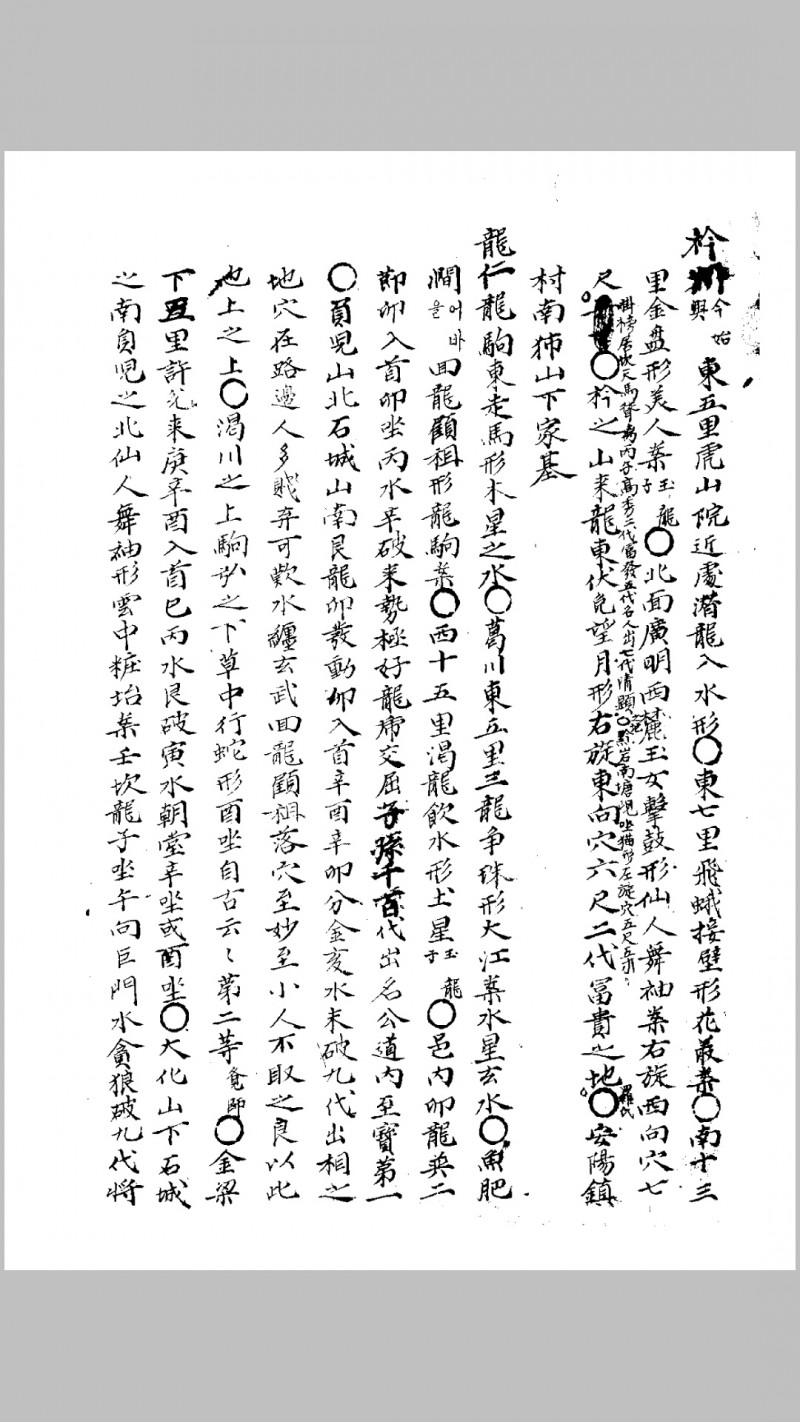 衿州今始興東五里虎山院近處潛龍入水形〇東七里飛蛾接壁形花叢案〇南十三
里金盘形美人案玉龍子〇北面廣明西麓玉女擊鼓形仙人舞袖案右旋西向穴七
尺〇衿之山来龍東伏兎望月形右旋東向穴六尺二代冨貴之地〇安陽鎮
村南狮山下家基
龍仁龍駒東走馬形木星之水〇葛川東五里三龍争珠形大江案水星玄水〇魚肥
澗어바을回龍顧祖形龍駒案〇西十五里渴龍飲水形土星玉龍子〇邑内卯龍巽二
節卯入首卯坐丙水辛破来勢極好龍席交屈子孫千百代出名公道内至寶第一
〇負児山北石城山南艮龍卯發動卯入首辛酉辛卯分金亥水未破九代出相之
地穴在路邊人多賎弃可歎水纏玄武回龍顧祖落穴至妙至小人不取之良以此
也上之上〇渴川之上駒弘之下草中行蛇形酉坐自古云〻第二等〇金梁
下五里許兌来庚辛酉入首巳丙水艮破寅水朝堂辛坐或酉坐〇大化山下石城
之南負児之北仙人舞袖形雲中粧坮案壬坎龍子坐午向巨門水貪狼破九代将